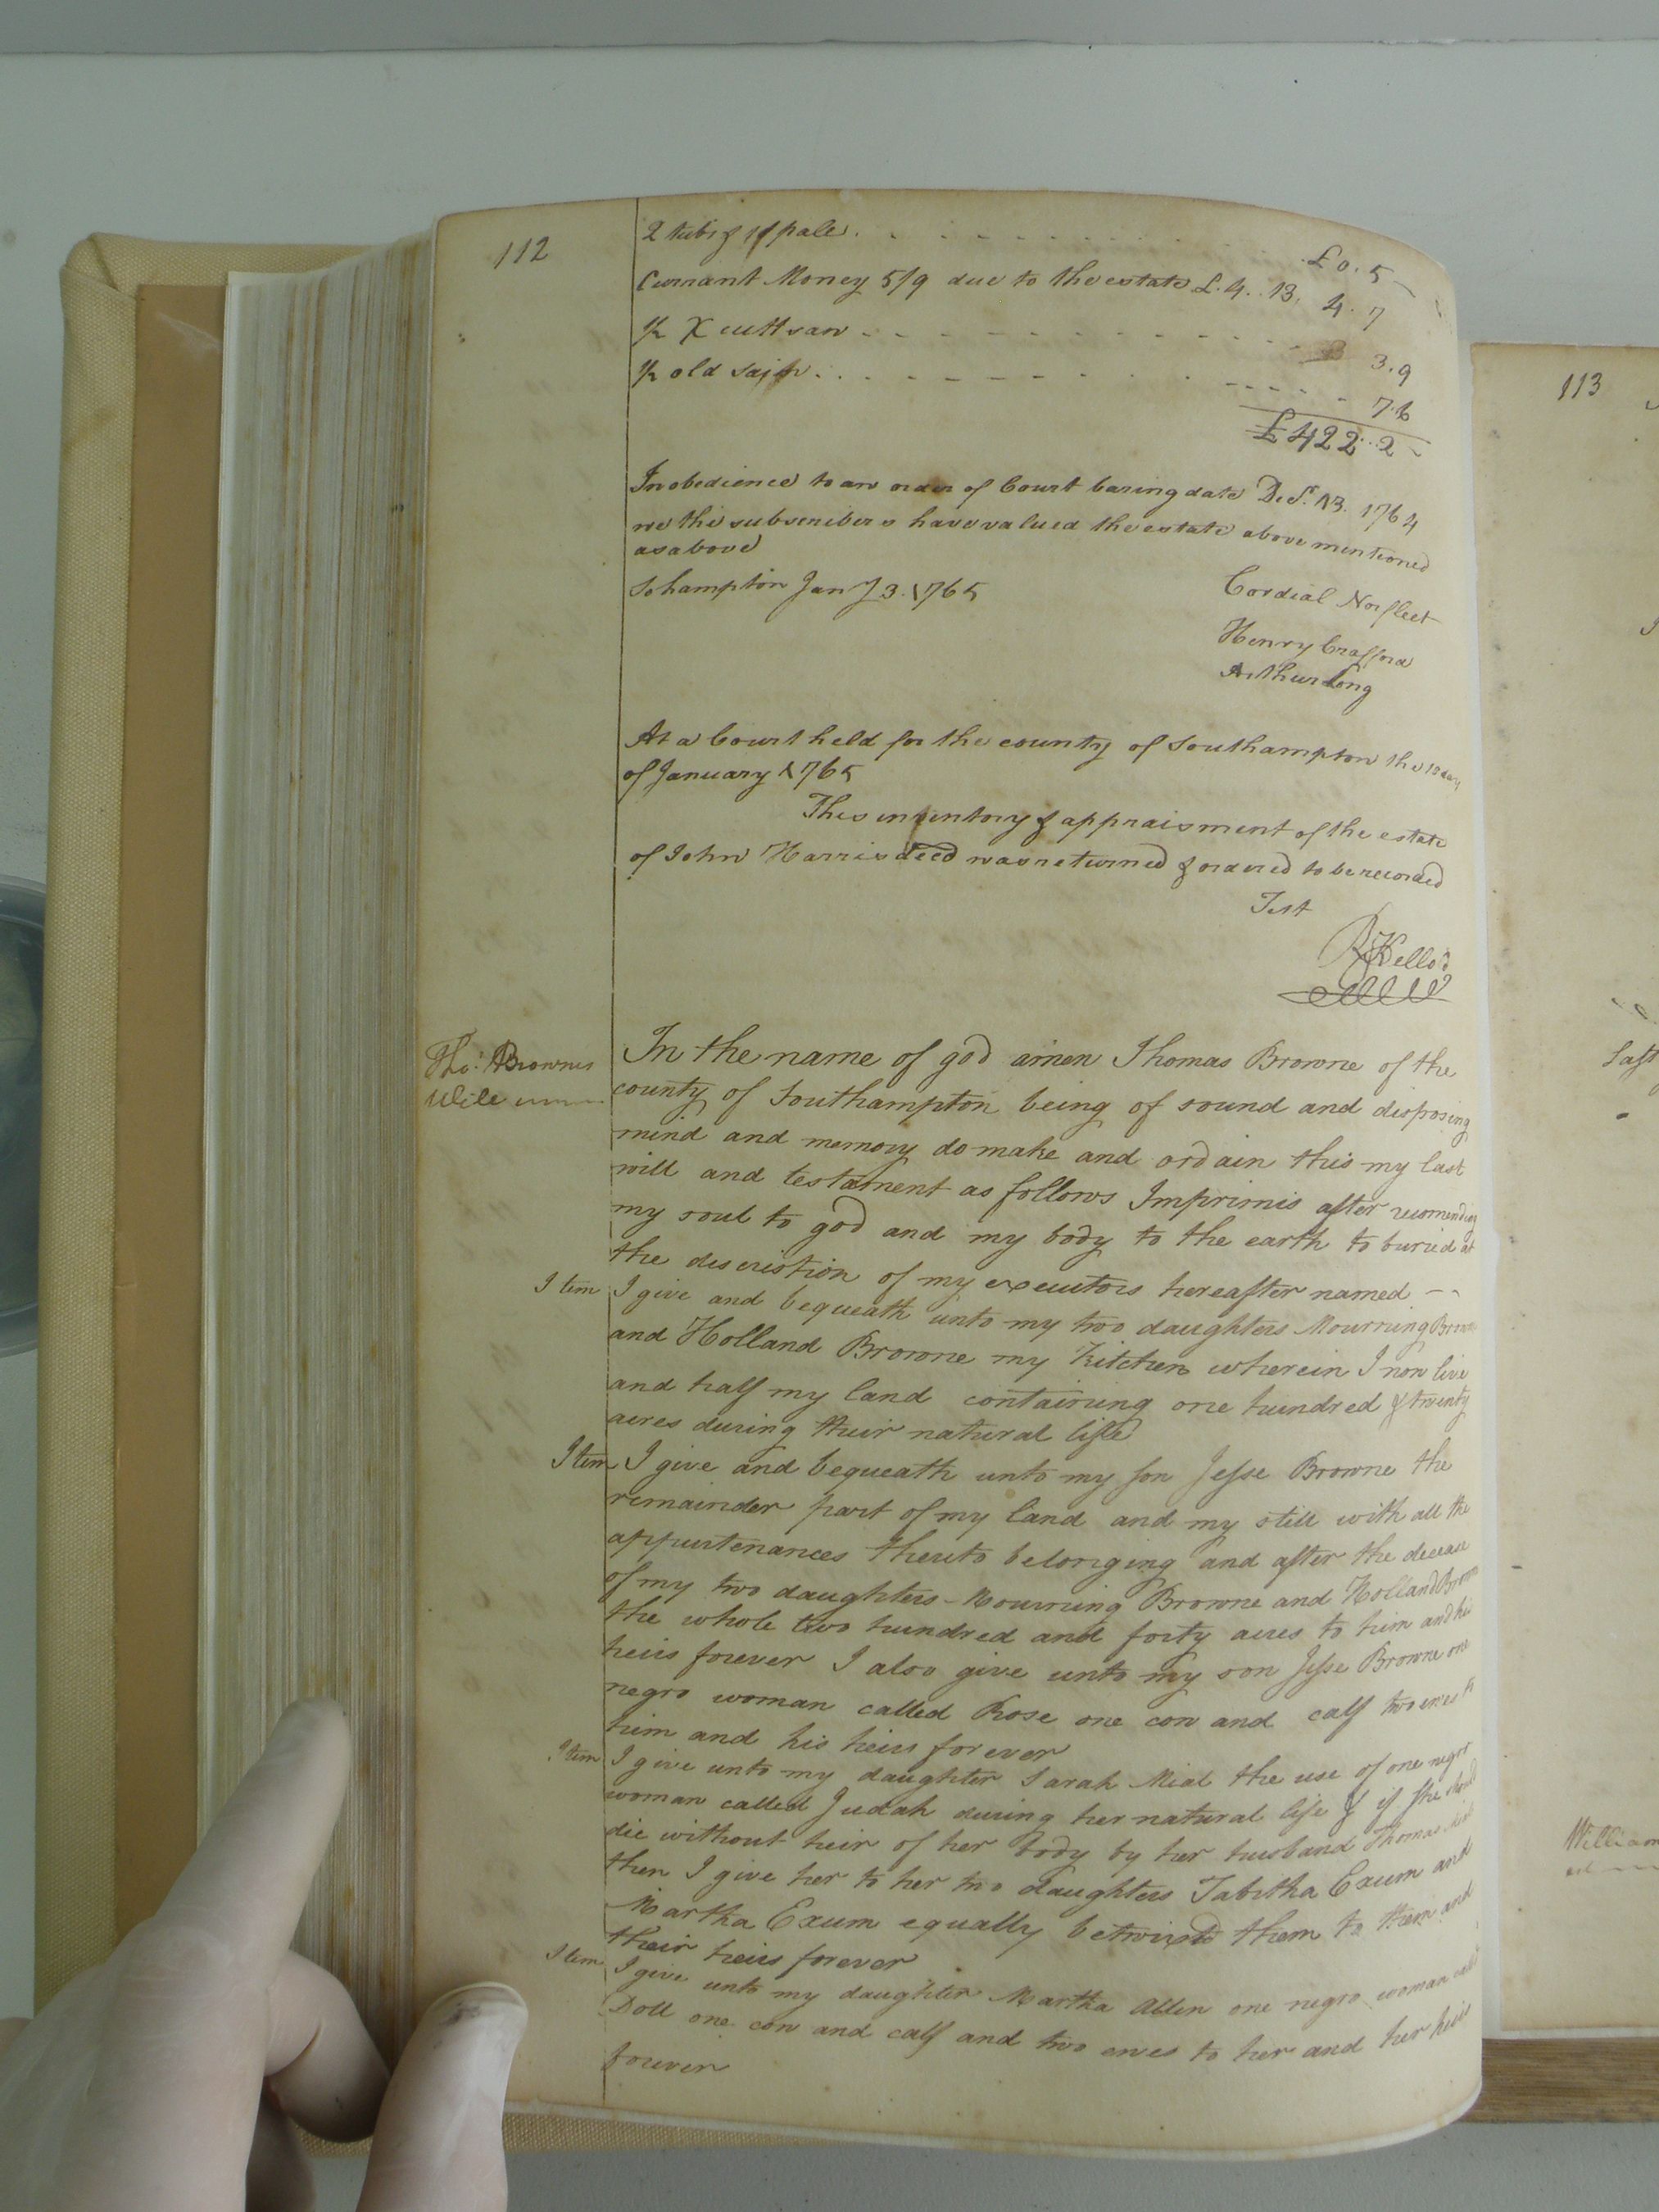 112
2 tubs & 1 pale . . . £0 . 5 -
Currant Money 5/9 due to the estate £.4..13. 4 . 7
X cutt saw - - - 3 . 9
old - - - 7.6
£422..2 -
In obedience to an order of Court baring date Dec.r 13. 1764
we the subscribers have valued the estate above mentioned
as above
Sohampton Jany 3. 1765
Cordial Norfleet
Henry Crafford
Arthur Long
At a Court held for the county of Southampton the 10 day
of January 1765
This inventory & appraisment of the estate
of John Harris dec'd was returned & ordered to be recorded
Test
R Kello
Tho.s Browns
Will
In the name of god amen Thomas Browne of the
county of Southampton being of sound and disposing
mind and memory do make and ordain this my last
will and testament as follows Imprimis after recomending
my soul to god and my body to the earth to buried at
the discristion of my executors hereafter named - -
Item I give and bequeath unto my two daughters Mourning Browne
and Holland Browne my Kitchen wherein I now live
and half my land containing one hundred & twenty
acres during their natural life
Item I give and bequeath unto my son Jesse Browne the
remainder part of my land and my still with all the
appurtenances thereto belonging and after the decease
of my two daughters - Mourning Browne and Holland Browne
the whole two hundred and forty acres to him and his
heirs forever I also give unto my son Jesse Browne one
negro woman called Rose one cow and calf two ewes to
him and his heirs for ever
Item I give unto my daughter Sarah Mial the use of one negro
woman called Judah during her natural life & if she should
die without heir of her body by her husband Thomas Mial
then I give her to her two daughters Tabitha Exum and
Martha Exum equally betwixt them to them and
their heirs forever
Item I give unto my daughter Martha Allen one negro woman call'd
Doll one cow and calf and two ewes to her and her heirs
forever
113
Last
William